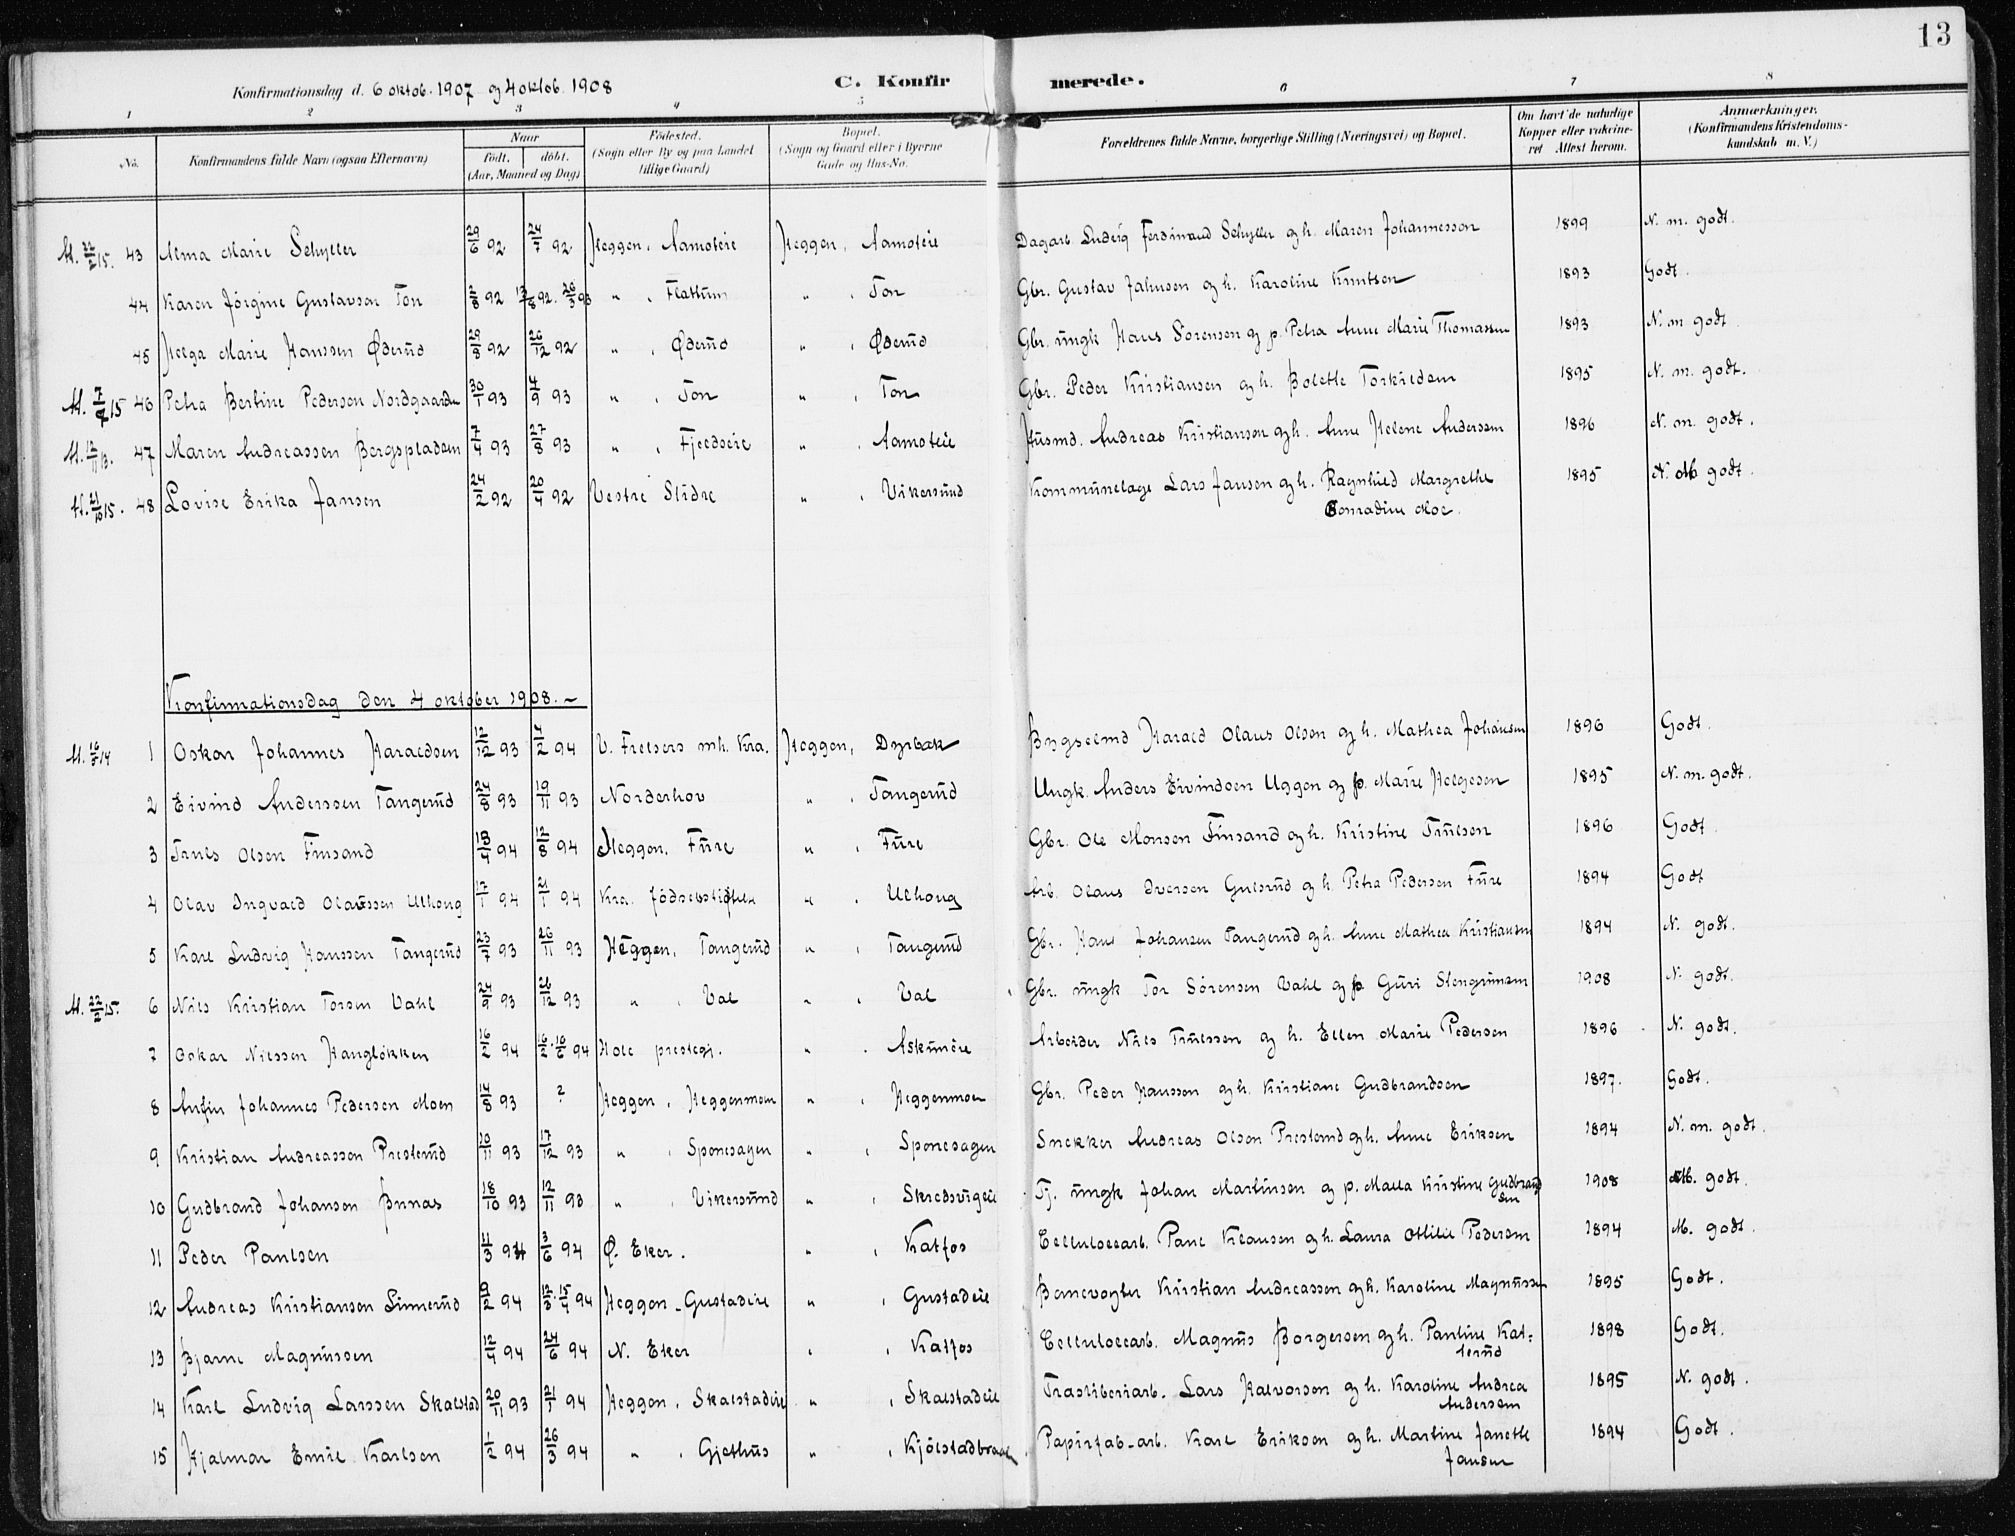 13
Konfirmationsdag d. 6 oktob. 1907 og 4 oktob. 1908 C. Konfirmerede.
1 2 3 4 5 6 7 8
No. Konfirmandens fulde Navn (ogsaa Efternavn) Naar født. døbt. (Aar, Maaned og Dag) Fødested. (Sogn eller By og paa Landet tillige Gaard) Bopæl. (Sogn og Gaard eller i Byerne Gade og Hus-No. Forældrenes fulde Navne, borgerlige Stilling (Næringsvei) og Bopæl. Om havt de naturlige Kopper eller vaksineret Attest herom. Anmærkninger. (Konfirmandens Kristendomskundskab m. V.)
At. 22/2 15. 43 Alma Marie Schyller 29/6 92 24/7 92 Heggen, Aamoteie Heggen, Aamoteie Dagarb. Ludvig Ferdinand Schyller og h. Maren Johannesson 1899 N. m. godt.
44 Karen Jørgine Gustavsen Ton 2/8 92 " , Flattum " , Ton Gbr. Gustav Jahnsen og h. Karoline Knutsen 1893 Godt.
45 Helga Marie Hanssen Øderud 29/8 92 26/12 92 " , Øderud " , Øderud Gbr. ungk Hans Sørensen og p. Petra Anne Marie Thomassen 1893 N. m. godt
At. 7/9 15 46 Petra Bertine Pedersen Nordgaarden 30/1 93 4/9 93 " , Ton " , Ton Gbr. Peder Kristiansen og h. Bolette Torkildsen 1895 N. m. godt.
At. 12/11 13. 47 Maren Andreassen Bergspladsen 7/4 93 27/8 93 " , Fjeldseie " , Aamoteie Husmd. Andreas Kristianson og h. Anne Helene Anderssen 1896 N. m. godt.
At. 21/10 15. 48 Lovise Erika Jansen 24/2 92 20/4 92 Vestre Slidre " , Vikersund Kommunelæge Lars Jansen og h. Ragnhild Margrethe 1895 N. M godt.
Conradine Moe.
Konfirmationsdag den 4 oktober 1908.-
At. 16/3 14 1 Oskar Johannes Haraldsen 12/12 93 4/2 94 V. Frelsers mh. Kra. Heggen, Dyrbæk Bygselmd Harald Olaus Olsen og h. Mathea Johansen 1896 Godt.
2 Eivind Anderssen Tangerud 24/8 93 19/11 93 Norderhov " , Tangerud Ungk. Anders Eivindsen Uggen og p. Marie Helgesen 1895 N. m. godt.
3 Truls Olsen Finsand 18/4 94 12/8 94 Heggen, Fure " , Fure Gbr. Ole Monsen Finsand og h. Kristine Trulsen 1896 Godt
4 Olav Ingvald Olaussen Ulhoug 17/1 94 21/1 94 Kra. fødselsstiftelse " , Ulhoug Arb. Olaus Iversen Gulsrud og h. Petra Pedersen Fure 1894 Godt
5 Karl Ludvig Hanssen Tangerud 23/7 93 26/11 93 Heggen, Tangerud " , Tangerud Gbr. Hans Johansen Tangerud og h. Anne Mathea Kristiansen 1894 N. godt.
At. 22/2 15. 6 Nils Kristian Torsen Vahl 24/9 93 26/12 93 " , Val " , Val Gbr. ungk Tor Sørensen Vahl og p. Guri Stengrimsen 1908 N. godt.
7 Oskar Nilssen Hangløkken 16/2 94 Hole prestegj. " , Askimeie Arbeider Nils Trulssen og h. Ellen Marie Pedersen 1896 N. godt.
8 Anfin Johannes Pedersen Moen 14/8 93 ? Heggen, Heggenmoen " , Heggenmoen Gbr. Peder Hanssen og h. Kristiane Gudbrandsen 1897. Godt.
9 Kristian Andreasson Presterud 10/11 93 17/12 93 " , Sponesagen " , Sponesagen Snekker Andreas Olsen Presterud og h. Anne Eriksen 1894 N. m. godt.
10 Gudbrand Johanson Bunas 18/10 93 12/11 93 " , Vikersund " , Skredsvigeie Tj. ungk Johan Martinsen og p. Malla Kristine Gudbrandsen 1908 M. godt.
11 Peder Paulsen 11/3 94 3/6 94 Ø. Eker. " , Katfos Cellulosearb. Paul Klausen og h. Laura Ottilie Pedersen 1894 M. godt.
12 Andreas Kristianson Linnerud 19/2 94 Heggen - Gustadeie " , Gustadeie Banevogter Kristian Andreassen og h. Karoline Magnussen 1895 Godt.
13 Bjarne Magnussen 12/4 94 24/6 94 N. Eker " , Katfos Cellulosearb. Magnus Borgersen og h. Pauline Katterud 1898 Godt.
14 Karl Ludvig Larssen Skalstad 20/11 93 21/1 94 Heggen, Skalstadeie " , Skalstadeie Træsliberiarb. Lars Halvorsen og h. Karoline Andrea 1895 N. godt.
Andersen
15 Hjalmar Emil Karlsen 1/2 94 26/3 94 " , Gjethus " , Kjølstadbraaten Papirfab-arb. Karl Eriksen og h. Martine Janette 1894 Godt.
Jansen